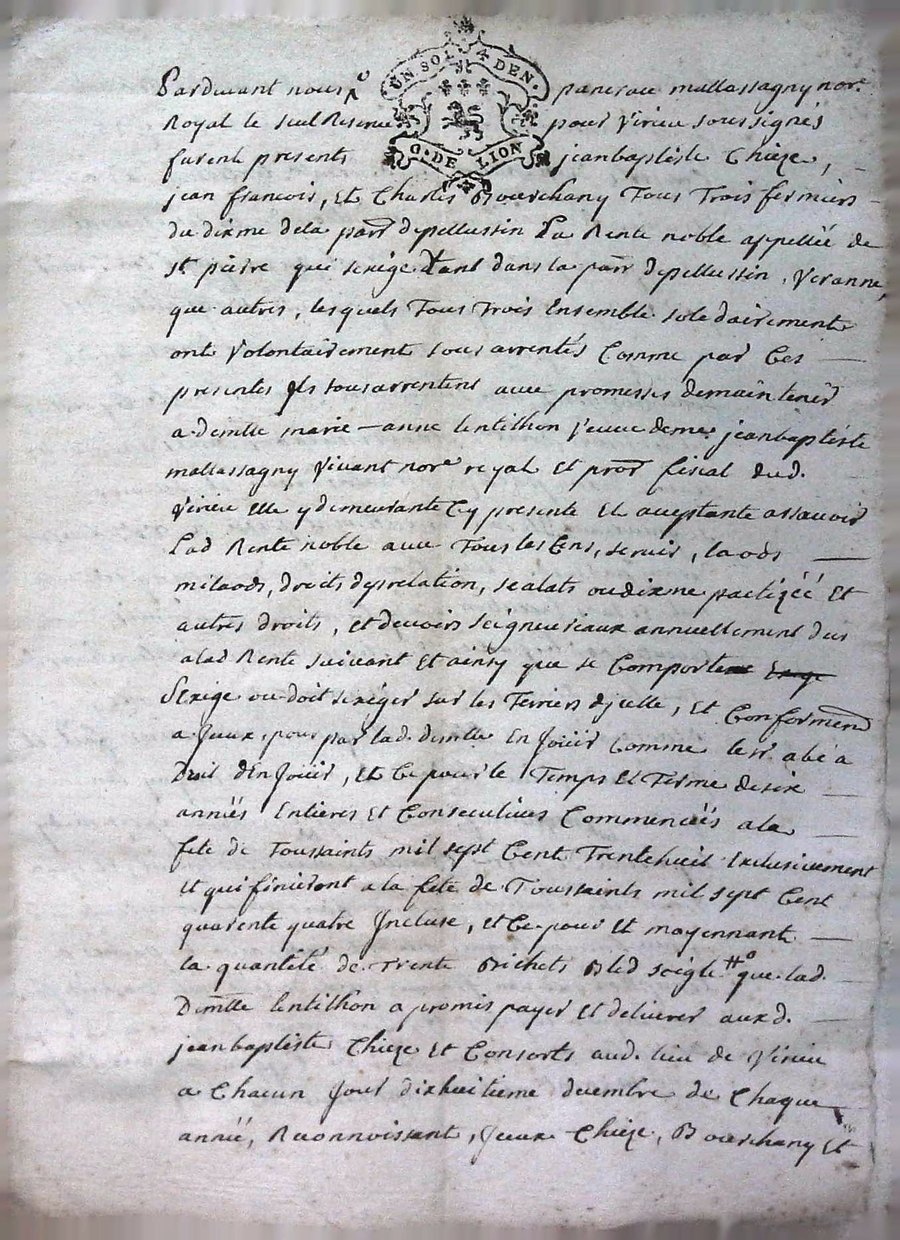 UN SOL 4 DEN.
G. DE LION
Pardevant nous pancrace mallassagny nore.
Royal le seul Reservé pour Virieu soussignés
furent presents jeanbaptiste Chieze,
jean francois, et Charles Bourchany Tous Trois fermiers
du dixme dela parr depellussin La Rente noble appellée de
st pierre qui sexige Tant dans la parr depellussin, Veranne,
que autres, lesquels Tous Trois Ensemble solidairement
ont Volontairement sous arrentés Comme par Ces
presentes Ils sousarrentent avec promesses demaintenir
a demlle marie-anne lentilhon veuve deme. jeanbaptiste
mallassagny Vivant nore royal et procr fiscal dud.
Virieu Elle y demeurante Cy presente Et aceptante assavoir
Lad Rente noble avec Tous les Cens, servis, laods
milaods, droits dysrelation, sealats oudixme pactizéé Et
autres droits, et devoirs seigneuriaux annuellement dus
alad Rente suivant Et ainsy que se Comporte
Sexige ou doit sexiger sur les Terriers djcelle, Et Conformemt
a Jceux, pour par lad. demlle En Joüir Comme le sr. abé a
Droit dEn Joüir, et Ce pour le Temps Et Terme desix
annéés Entieres Et Consecutives Commencéés ala
fete de Toussaints mil sept Cent Trentehuit Exclusivement
Et qui finiront a la fete de Toussaints mil sept Cent
quarente quatre Jncluse, et Ce pour Et moyennant
la quantité de Trente Bichets Bled seigle # que lad.
Demlle lentilhon a promis payer Et delivrer auxd.
jeanbaptiste Chieze Et Consorts aud. lieu de Virieu
a Chacun Jour dixhuitieme decembre de Chaque
année, Reconnoissant, Jceux Chieze, Bourchany Et